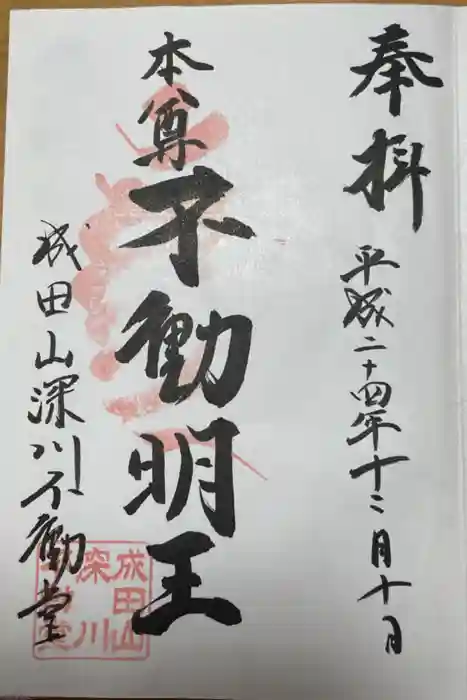 奉拝
平成二十四年十二月十日
本尊
不動明王
成田山深川不動堂
成田山
深川